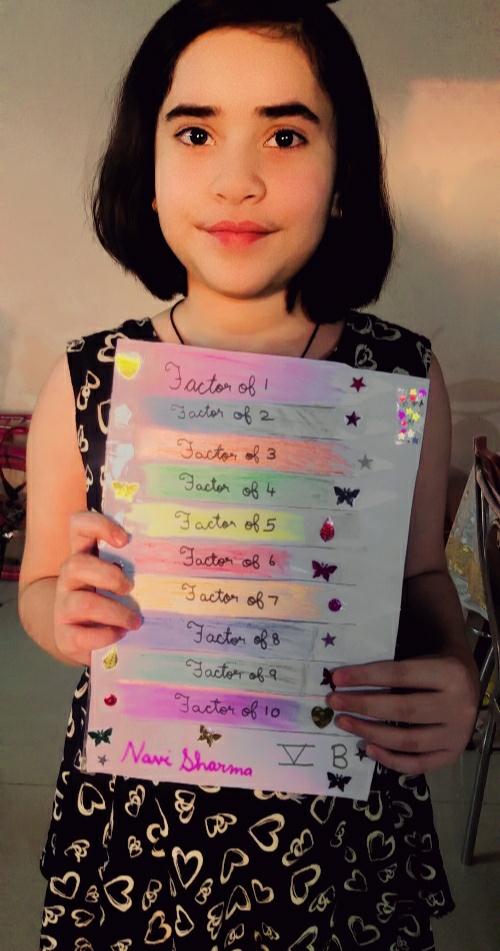 Factor of 1
Factor of 2
Factor of 3
Factor of 4
Factor of 5
Factor of 6
Factor of 7
Factor of 8
Factor of 9
Factor of 10
Navi Sharma V B